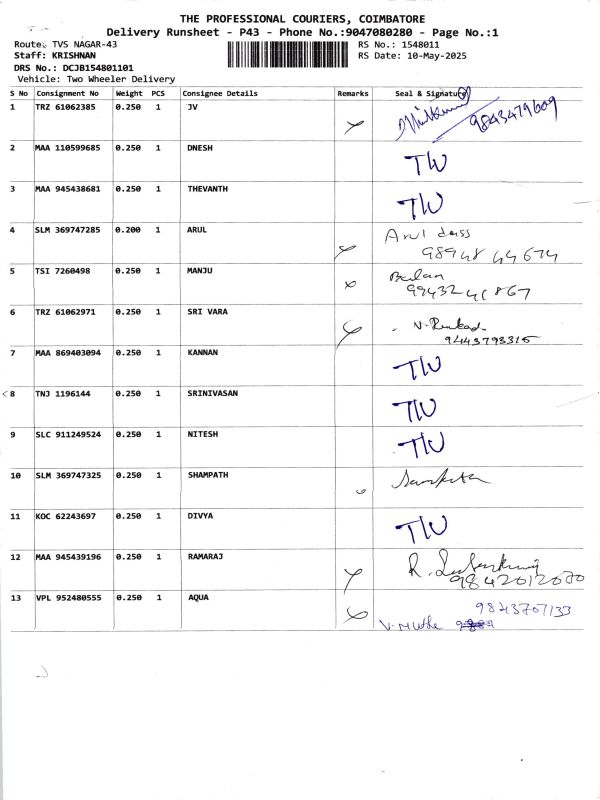 THE PROFESSIONAL COURIERS, COIMBATORE
Delivery Runsheet - P43 - Phone No.:9047080280 - Page No.:1
Route: TVS NAGAR-43 RS No.: 1548011
Staff: KRISHNAN RS Date: 10-May-2025
DRS No.: DCJB154801101
Vehicle: Two Wheeler Delivery
S No Consignment No Weight PCS Consignee Details Remarks Seal & Signature
1 TRZ 61062385 0.250 1 JV 9843479609
2 MAA 110599685 0.250 1 DNESH T/W
3 MAA 945438681 0.250 1 THEVANTH T/W
4 SLM 369747285 0.200 1 ARUL Arul dass
98948 44674
5 TSI 7260498 0.250 1 MANJU Balan
99432 41867
6 TRZ 61062971 0.250 1 SRI VARA
9443793315
7 MAA 869403094 0.250 1 KANNAN T/W
8 TNJ 1196144 0.250 1 SRINIVASAN T/W
9 SLC 911249524 0.250 1 NITESH T/W
10 SLM 369747325 0.250 1 SHAMPATH
11 KOC 62243697 0.250 1 DIVYA T/W
12 MAA 945439196 0.250 1 RAMARAJ R.
13 VPL 952480555 0.250 1 AQUA 9843707133